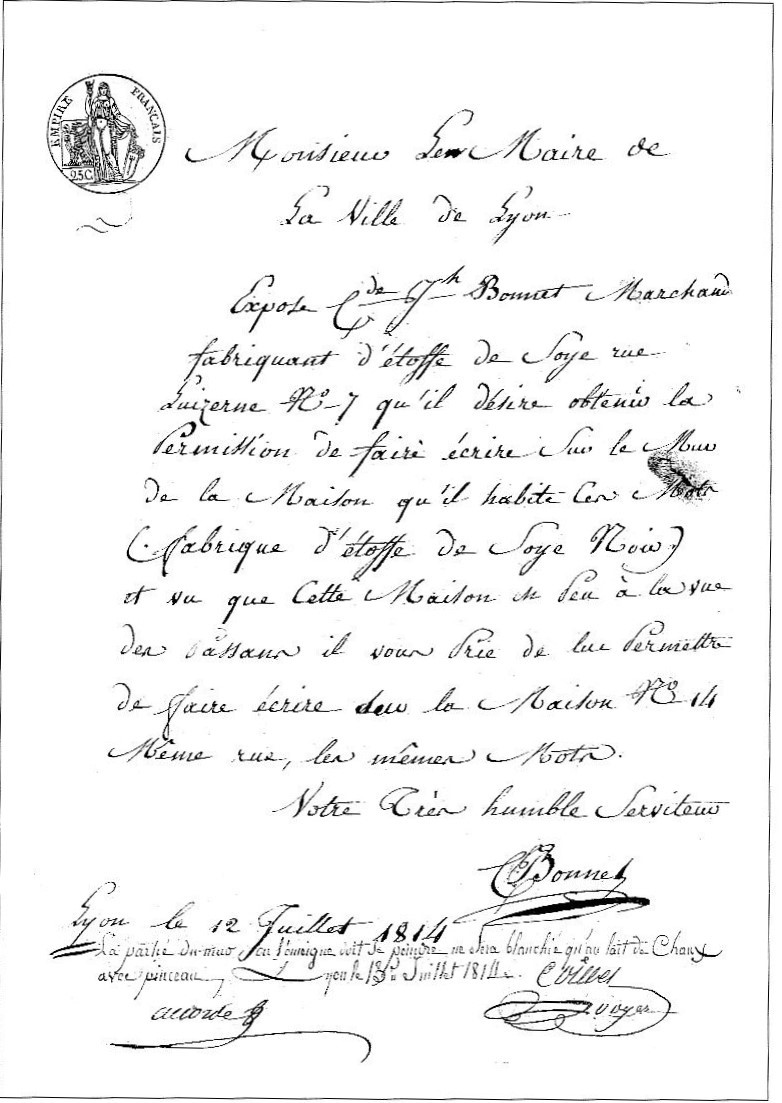 EMPIRE FRANÇAIS
25C
Monsieur Le Maire de
La Ville de Lyon
Expose Cde Jh Bonnet Marchand
fabriquant d'étoffe de Soye rue
Luizerne No 7 qu'il désire obtenir la
Permission de faire écrire Sur le Mur
de la Maison qu'il habite Ces Mots
(fabrique d'étoffe de Soye Noir)
et vu que Cette Maison est Peu à la vue
des Passans il vous Prie de lui Permettre
de faire écrire sur la Maison No 14
Même rue, les mêmes Mots.
Votre Très humble Serviteur
C Bonnet
Lyon le 12 Juillet 1814
La partie du mur ou l'enseigne doit se peindre ne Sera blanchie qu'au lait de Chaux
avec pinceau Lyon le 13 Juillet 1814
accordé
voyer